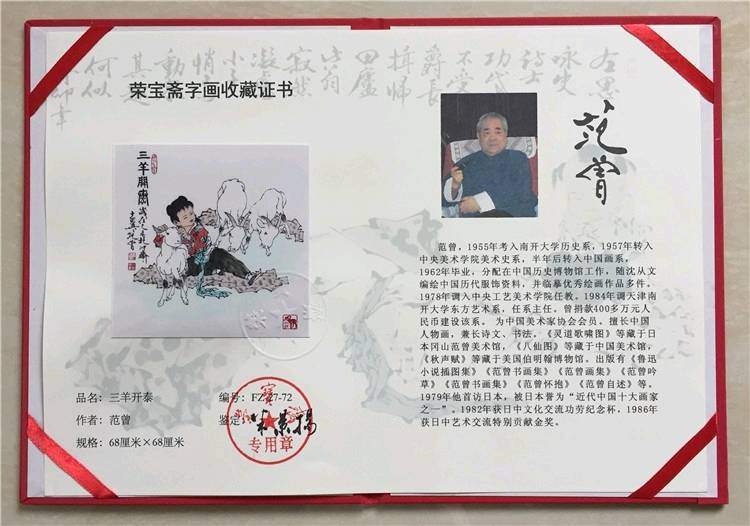 荣宝斋字画收藏证书
三羊開泰
品名：三羊开泰
编号：FZ-27-72
作者：范曾
鉴定：
规格：68厘米×68厘米
专用章
范曾
范曾，1955年考入南开大学历史系，1957年转入
中央美术学院美术史系，半年后转入中国画系，
1962年毕业，分配在中国历史博物馆工作，随沈从文
编绘中国历代服饰资料，并临摹优秀绘画作品多件。
1978年调入中央工艺美术学院任教。1984年调天津南
开大学东方艺术系，任系主任。曾捐款400多万元人
民币建设该系。 为中国美术家协会会员。擅长中国
人物画，兼长诗文、书法。《灵道歌啸图》等藏于日
本冈山范曾美术馆，《八仙图》等藏于中国美术馆，
《秋声赋》等藏于美国伯明翰博物馆。出版有《鲁迅
小说插图集》《范曾书画集》《范曾画集》《范曾吟
草》《范曾书画集》《范曾怀抱》《范曾自述》等。
1979年他首访日本。被日本誉为“近代中国十大画家
之一”，1982年获日中文化交流功劳纪念杯，1986年
获日中艺术交流特别贡献金奖。